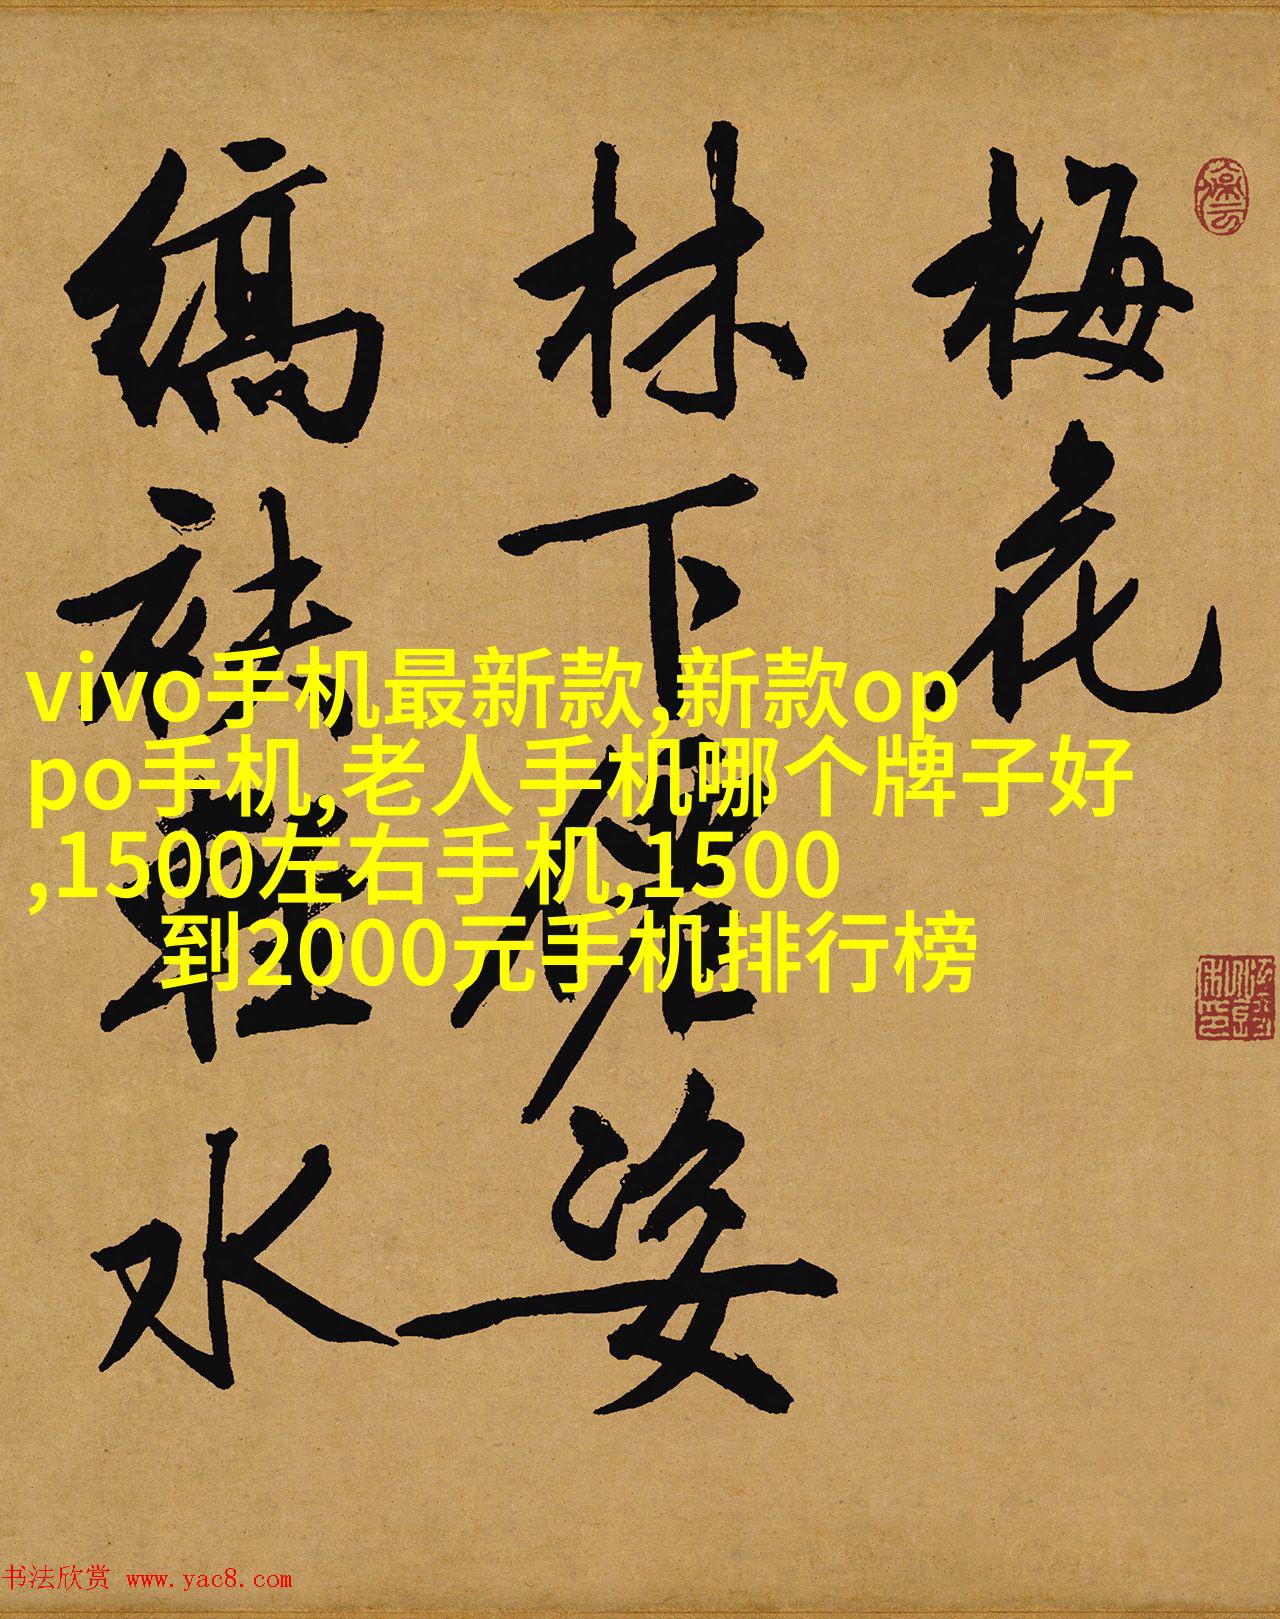 梅花
林下仙姿
缟袂轻水
vivo手机最新款,新款op
po手机,老人手机哪个牌子好
,1500左右手机,1500
到2000元手机排行榜
书法欣赏 www.yac8.com